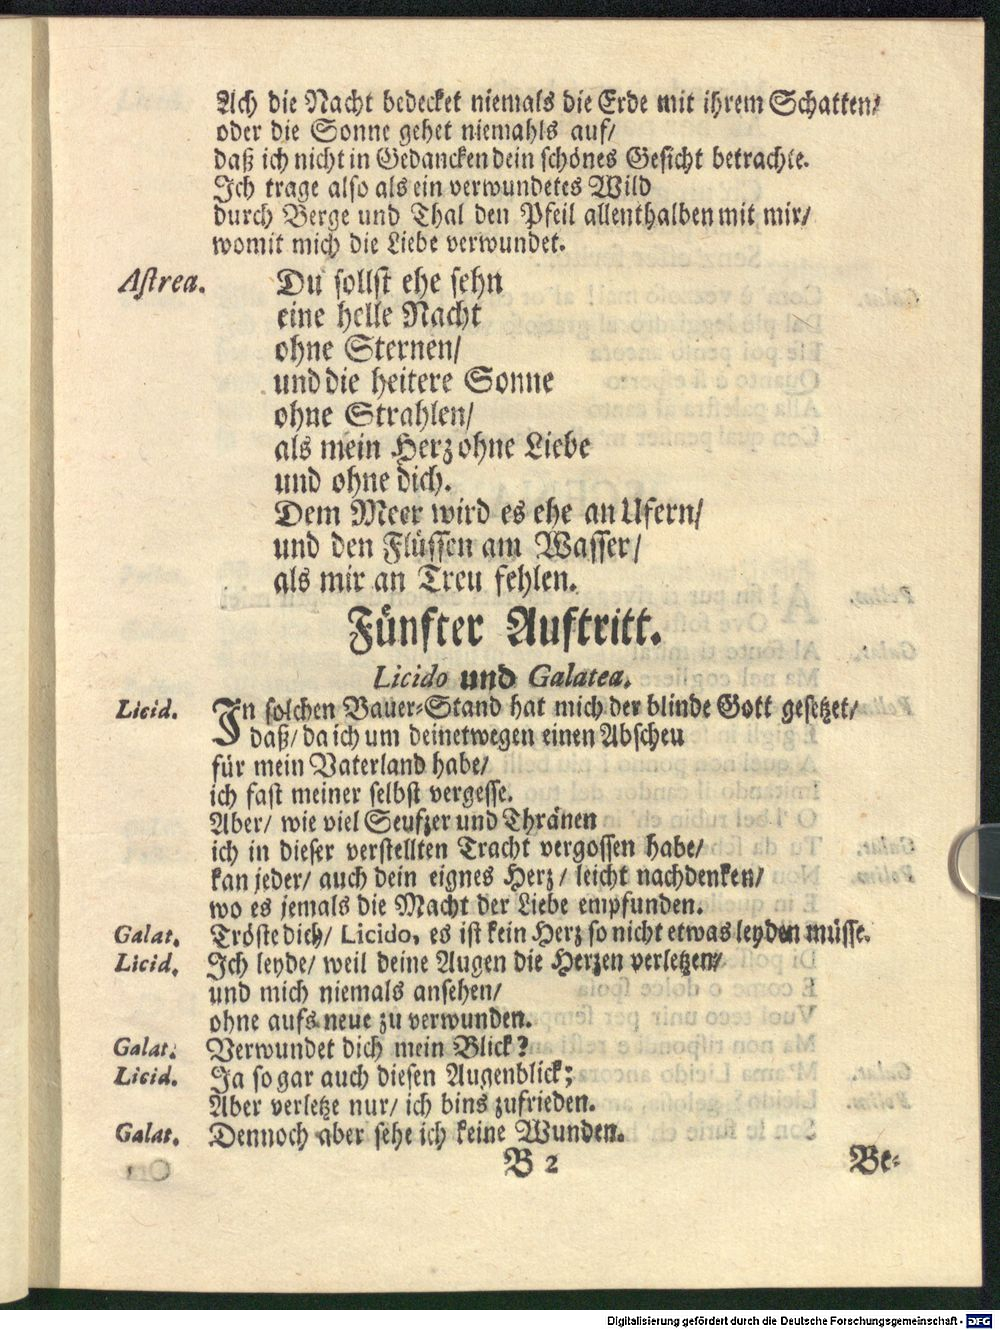 Ach die Nacht bedecket niemals die Erde mit ihrem Schatten/
oder die Sonne gehet niemahls auf/
daß ich nicht in Gedancken dein schönes Gesicht betrachte.
Ich trage also als ein verwundetes Wild
durch Berge und Thal den Pfeil allenthalben mit mir/
womit mich die Liebe verwundet.
Astrea. Du sollst ehe sehn
eine helle Nacht
ohne Sternen/
und die heitere Sonne
ohne Strahlen/
als mein Herz ohne Liebe
und ohne dich.
Dem Meer wird es ehe an Ufern/
und den Flüssen am Wasser/
als mir an Treu fehlen.
Fünfter Auftritt.
Licido und Galatea.
Licid. In solchen Bauer-Stand hat mich der blinde Gott gesetzet/
daß/ da ich um deinetwegen einen Abscheu
für mein Vaterland habe/
ich fast meiner selbst vergesse.
Aber/ wie viel Seufzer und Thränen
ich in dieser verstellten Tracht vergossen habe/
kan jeder/ auch dein eignes Herz/ leicht nachdenken/
wo es jemals die Macht der Liebe empfunden.
Galat. Tröste dich/ Licido, es ist kein Herz so nicht etwas leyden müsse.
Licid. Ich leyde/ weil deine Augen die Herzen verletzen/
und mich niemals ansehen/
ohne aufs neue zu verwunden.
Galat. Verwundet dich mein Blick?
Licid. Ja sogar auch diesen Augenblick;
Aber verletze nur/ ich bins zufrieden.
Galat. Dennoch aber sehe ich keine Wunden.
B 2 Be-
Digitalisierung gefördert durch die Deutsche Forschungsgemeinschaft - DFG